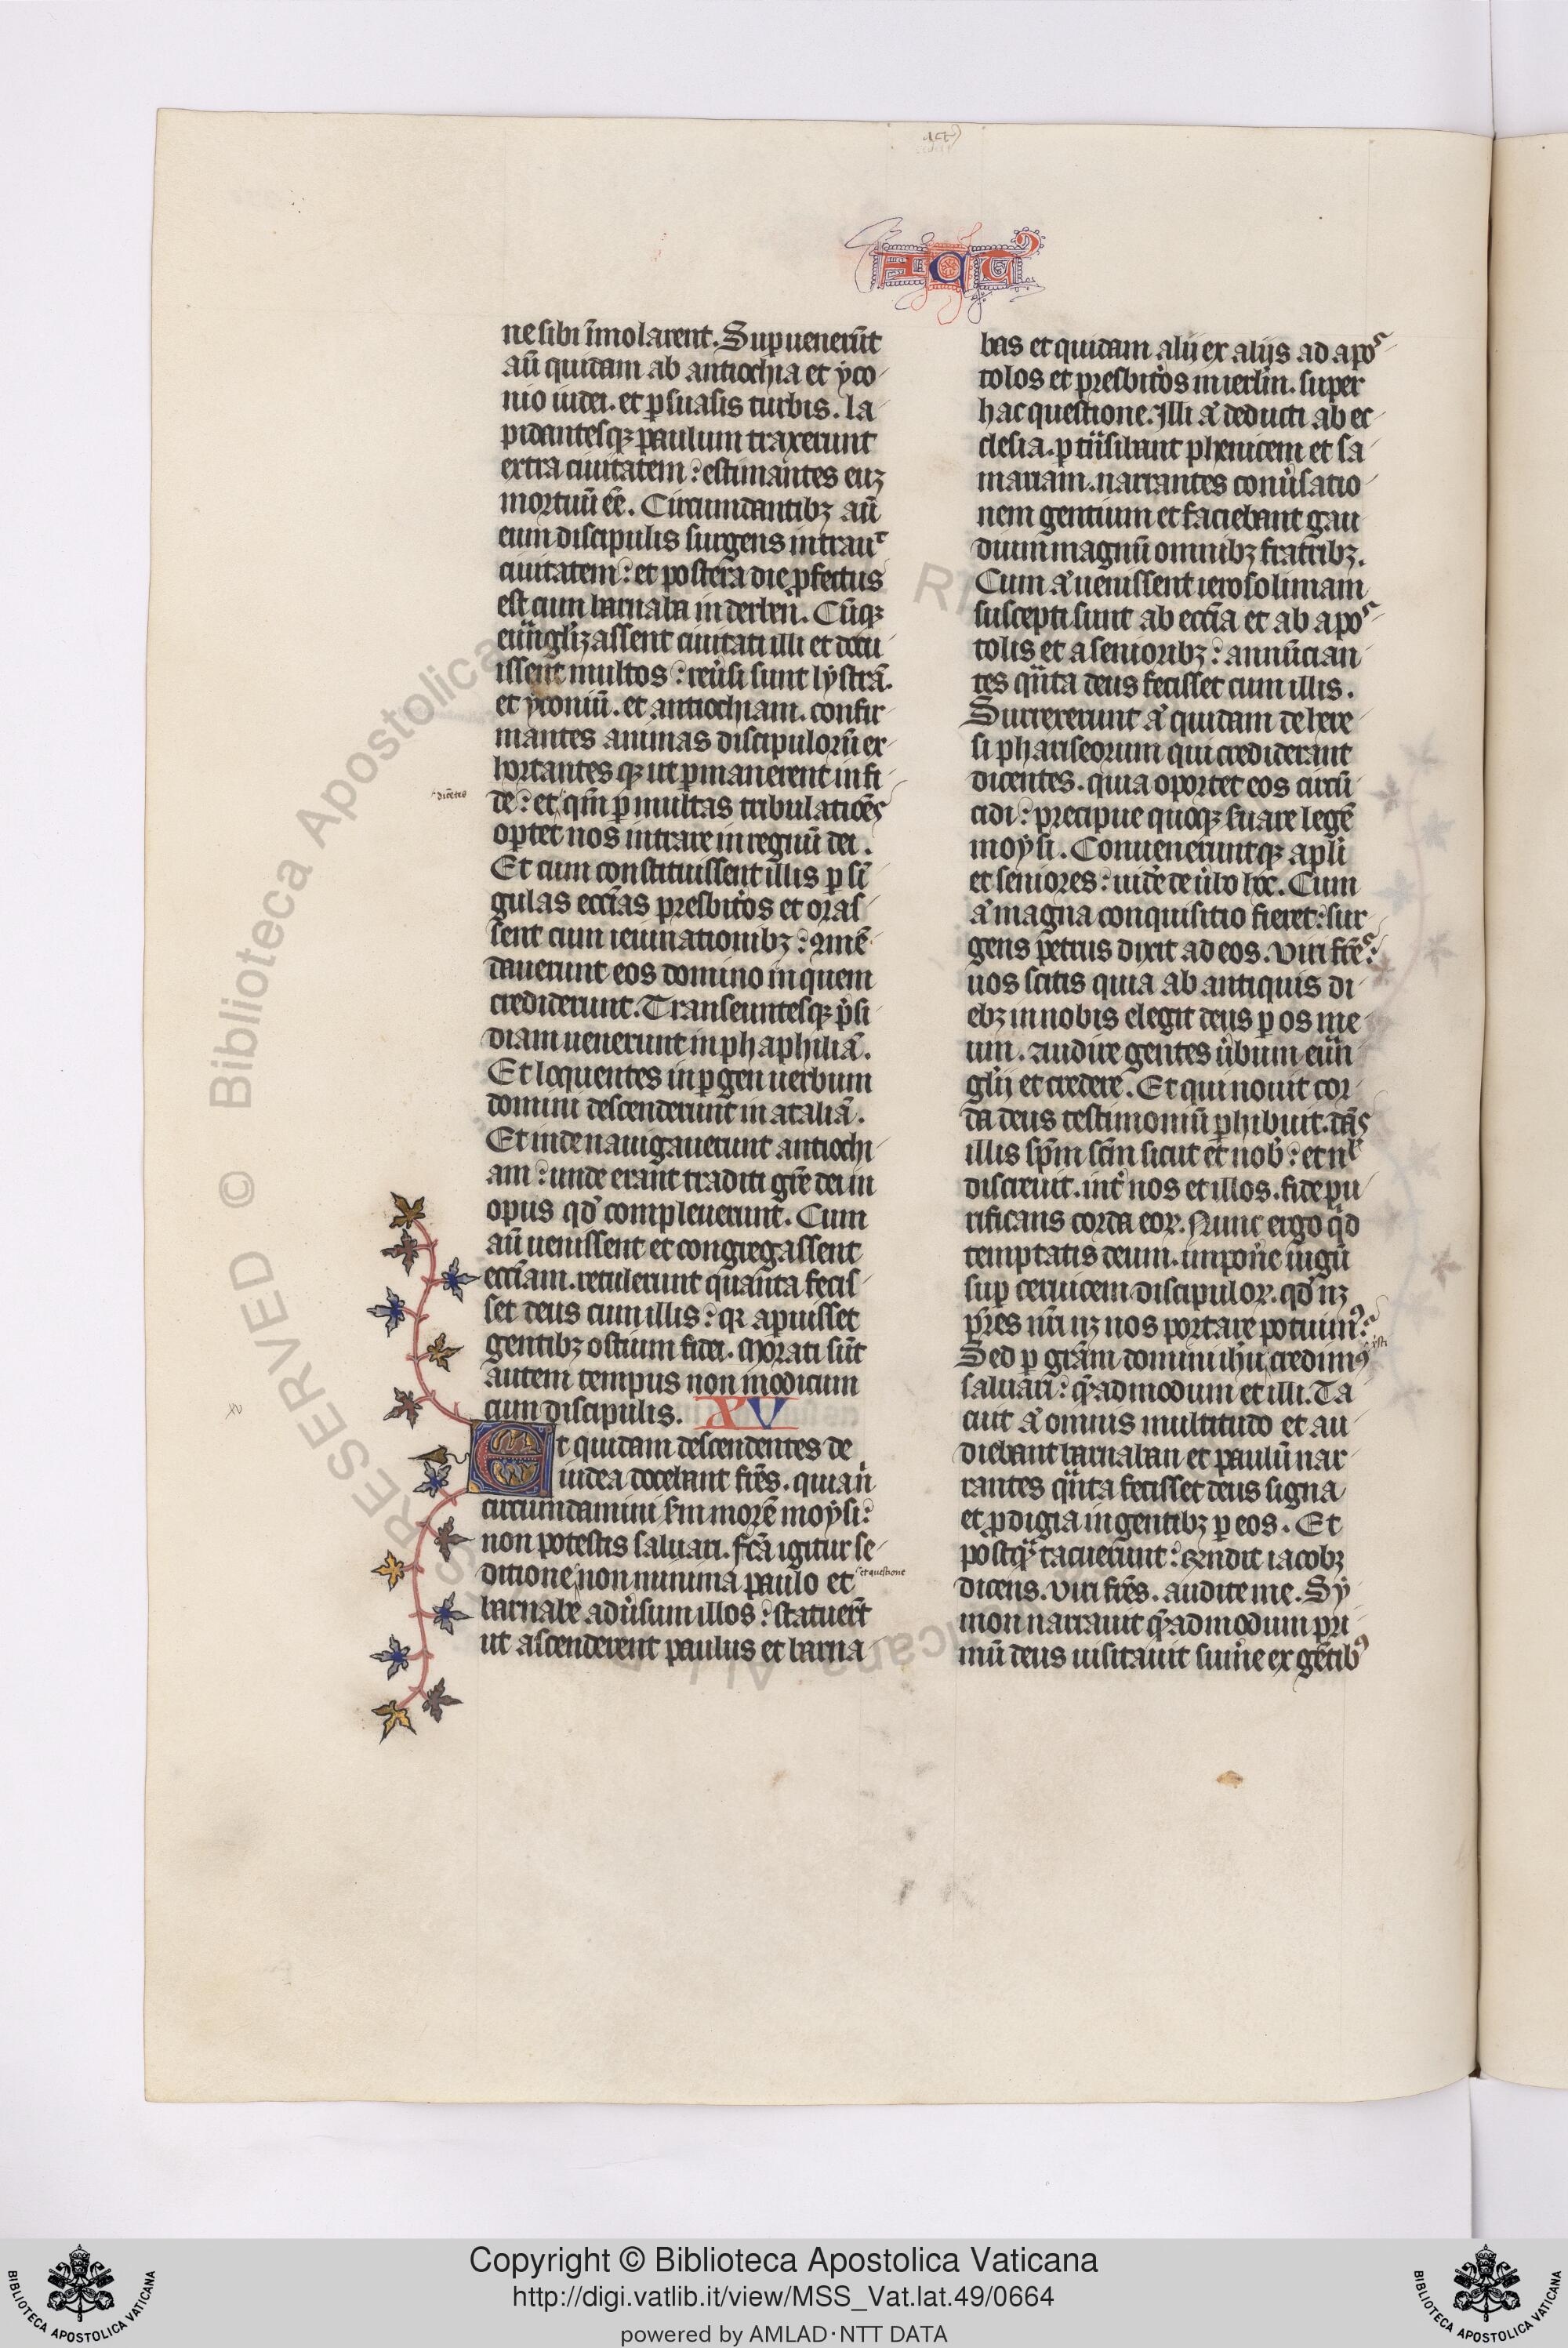 Act'
ne sibi īmolarent. Supuenerūt
aū quidam ab antiochia et yco
nio iudei. et psuasis turbis. la
pidantesqꝫ paulum traxerunt
extra ciuitatem: estimantes euꝫ
mortuū eē. Circumdantibꝫ aū
eum discipulis surgens intrauᵗ
ciuitatem: et postera die ꝓfectus
est cum barnaba in derben. Cūqꝫ
euāgliꝫassent ciuitati illi et docu
issent multos: reūsi sunt lystrā.
et yconiū. et antiochiam. confir
mantes animas discipulorū ex
hortantesqꝫ ut ꝑmanerent in fi
dicētes
de: et qm̄ ꝑ multas tribulatiōes
optet nos intrare in regnū dei.
Et cum constituissent illis ꝑ sī
gulas ecctias presbit'os et oras
sent cum ieiunationibꝫ: ꝯmē
dauerunt eos domino in quem
crediderunt. Transeuntesqꝫ pisi
diam uenerunt in phaphiliā.
Et loquentes in ꝑgen uerbum
domini descenderunt in ataliā.
Et inde nauigauerunt antiochi
am: unde erant traditi grē dei in
opus qd̄ compleuerunt. Cum
aū uenissent et congregassent
ecctiam. retulerunt quanta fecis
set deus cum illis: qꝛ aperuisset
gentibꝫ ostium fidei. Morati sūt
autem tempus non modicum
cum discipulis. XV
xv
Et quidam descendentes de
iudea docebant frēs. quia n̄
circumdamini sm morē moysi:
non potestis saluari. fcā igitur se
ditione non minima paulo et
et questione
barnabe adūsum illos: statuerūt
ut ascenderent paulus et barna
bas et quidam alij ex alijs ad apoˢ
tolos et presbit'os in ierlm̄. super
hac questione. Illi ā deducti ab ec
clesia. ꝑtūsibant phenicem et sa
mariam. narrantes conūsatio
nem gentium et faciebant gau
dium magnū omnibꝫ fratribꝫ.
Cum ā uenissent ierosolimam
suscepti sunt ab ecctia et ab apoˢ
tolis et a senioribꝫ: annūcian
tes quāta deus fecisset cum illis.
Surrexerunt ā quidam de here
si phariseorum qui crediderant
dicentes. quia oportet eos circū
cidi: precipue quoqꝫ suare legē
moysi. Conueneruntqꝫ apli
et seniores: uidē de ūbo hoc. Cum
ā magna conquisitio fieret: sur
gens petrus dixit ad eos. Viri frēˢ:
uos scitis quia ab antiquis di
ebꝫ in nobis elegit deus ꝑ os me
um. audire gentes ūbum euā
glij et credere. Et qui novit cor
da deus testimoniū ꝑhibuit. dās
illis spm̄ scm̄ sicut et nob̄: et nˡ
discreuit. int' nos et illos. fide pu
rificans corda eoꝝ. Nunc ergo qd
temptatis deum. imponē iugū
sup ceruicem discipuloꝝ. qd̄ nꝫ
pres nri nꝫ nos portare potuimꝰ:
Sed ꝑ grām domini ihu credimꝰ
xpsti
saluari: quēadmodum et illi. Ta
cuit ā omnis multitudo et au
diebant barnaban et paulū nar
rantes quāta fecisset deus signa
et ꝓdigia in gentibꝫ ꝑ eos. Et
postqᵃ tacuerunt: rn̄dit iacobꝫ
dicens. Viri frēs. audite me. Sy
mon narrauit quēadmodum pri
mū deus uisitauit sumē ex gētibꝰ
© Biblioteca Apostolica
RESERVED
Copyright © Biblioteca Apostolica Vaticana
http://digi.vatlib.it/view/MSS_Vat.lat.49/0664
powered by AMLAD·NTT DATA
BIBLIOTECA APOSTOLICA VATICANA
BIBLIOTECA APOSTOLICA VATICANA